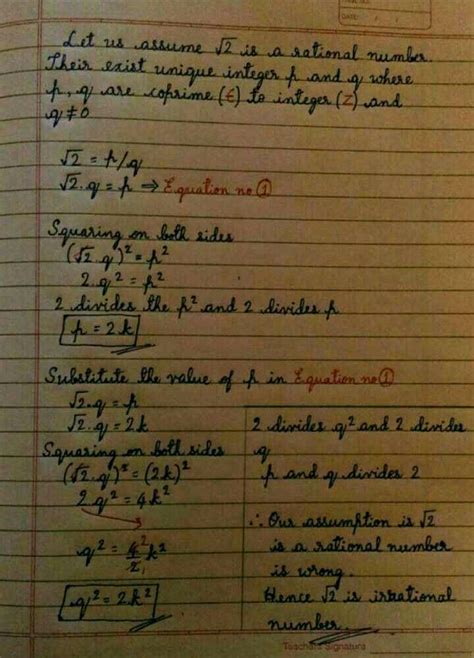 DATE: / /
Let us assume √2 is a rational number.
Their exist unique integer p and q where
p, q are coprime (E) to integer (Z) and
q ≠ 0
√2 = p/q
√2.q = p ⇒ Equation no ①
Squaring on both sides
(√2.q)² = p²
2.q² = p²
2 divides the p² and 2 divides p
p = 2k
Substitute the value of p in Equation no ①
√2.q = p
√2.q = 2k
Squaring on both sides
(√2.q)² = (2k)²
2.q² = 4k²
q² = 4²/2₁ k²
q² = 2k²
2 divides q² and 2 divides
q
p and q divides 2
∴ Our assumption is √2
is a rational number
is wrong.
Hence √2 is irrational
number.
Teacher's Signature